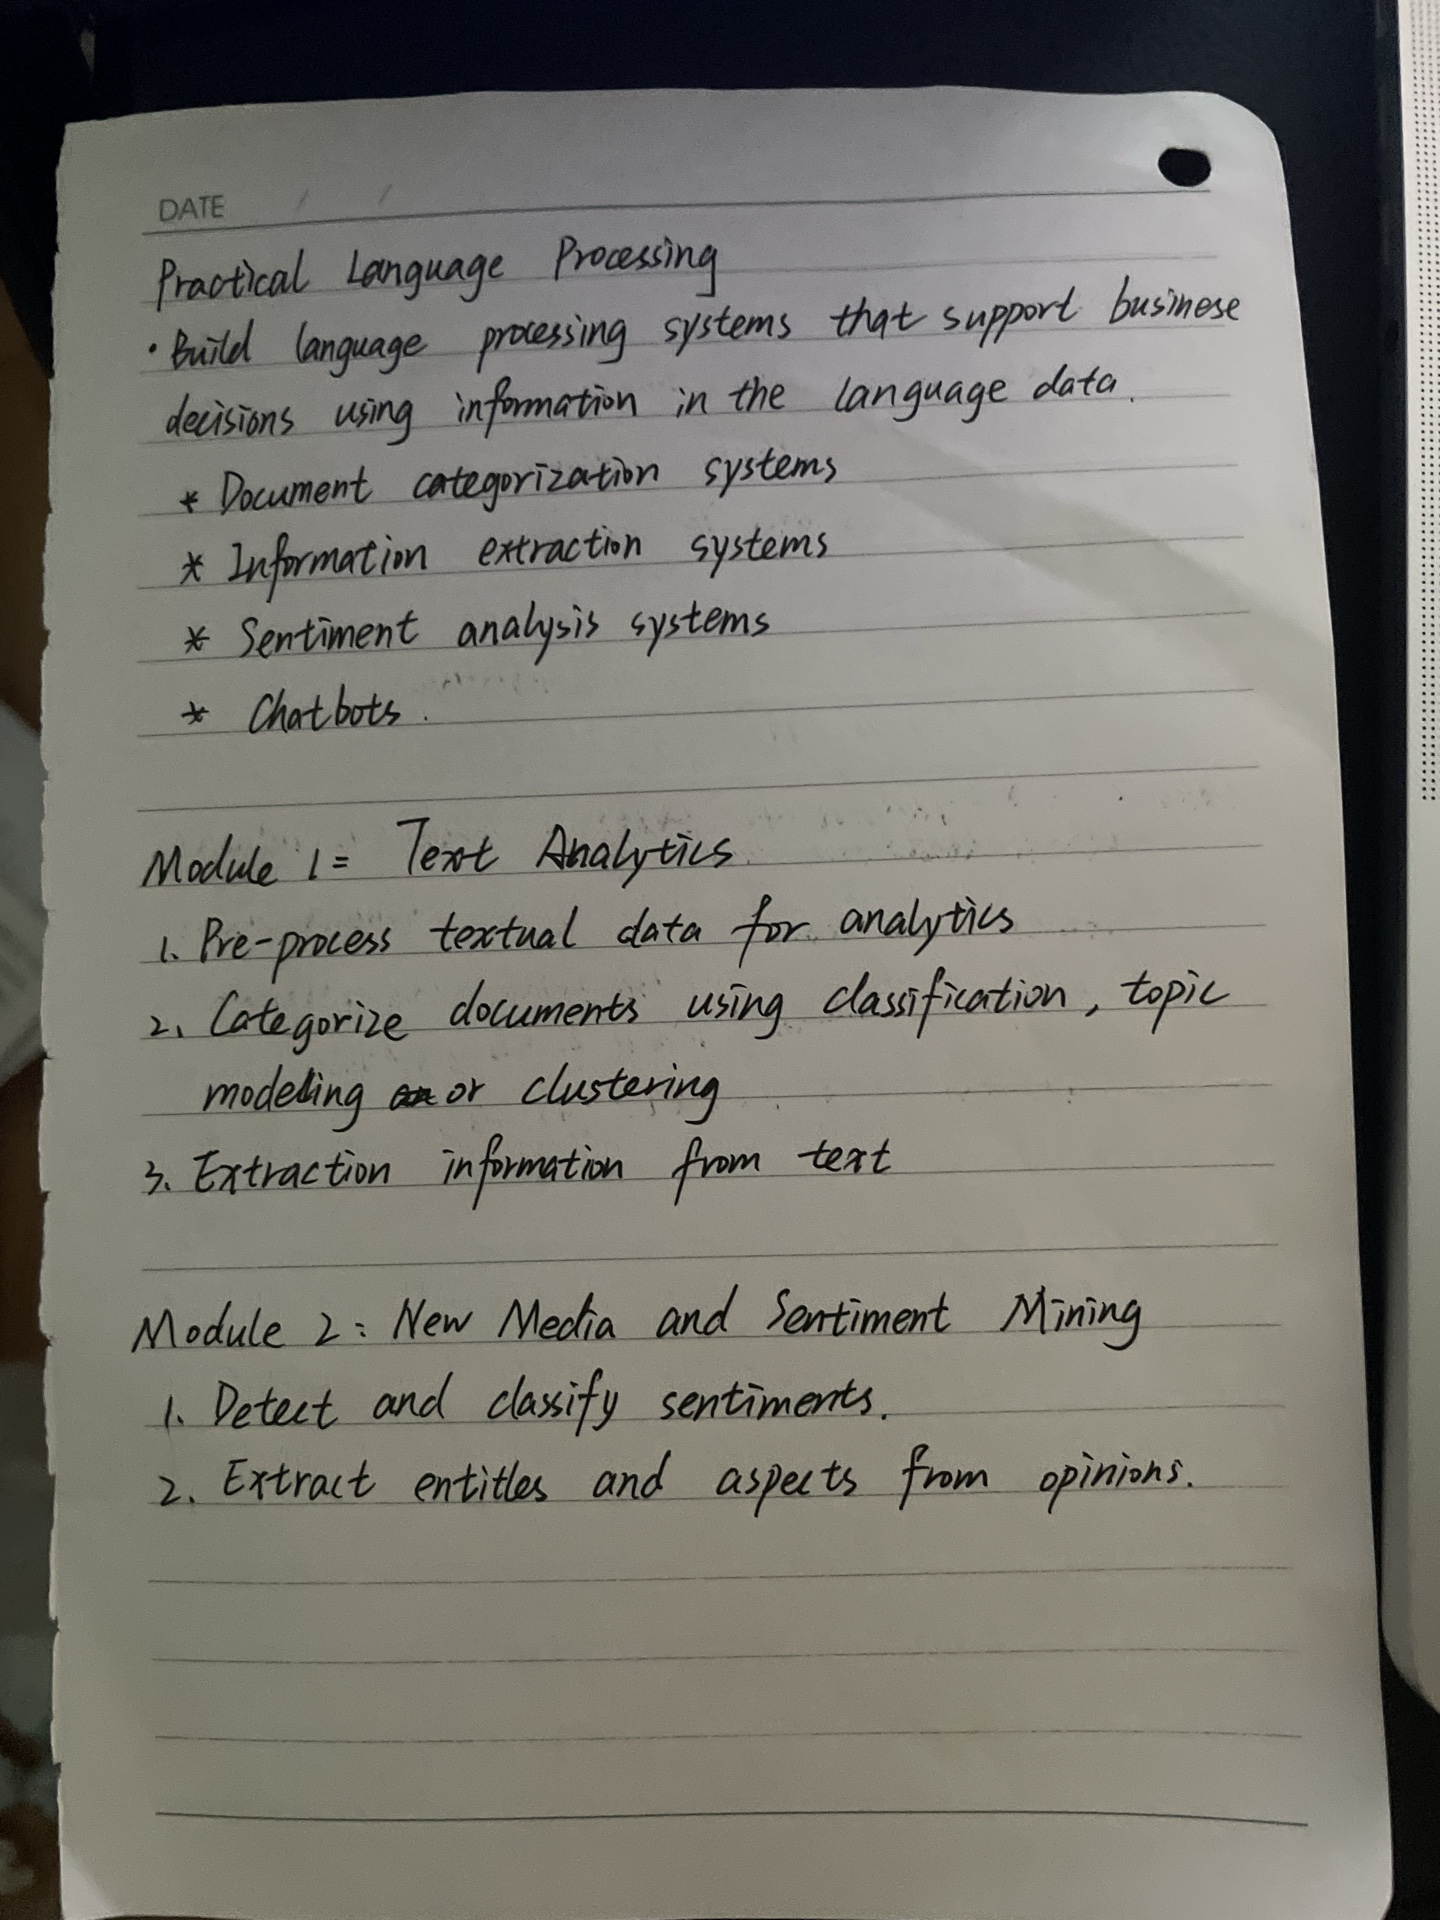 DATE / /
Practical Language Processing
· Build language processing systems that support businese
decisions using information in the language data.
* Document categorization systems
* Information extraction systems
* Sentiment analysis systems
* Chatbots.
Module 1= Text Analytics
1. Pre-process textual data for analytics
2. Categorize documents using classification, topic
modeling or clustering
3. Extraction information from text
Module 2: New Media and Sentiment Mining
1. Detect and classify sentiments.
2. Extract entitles and aspects from opinions.